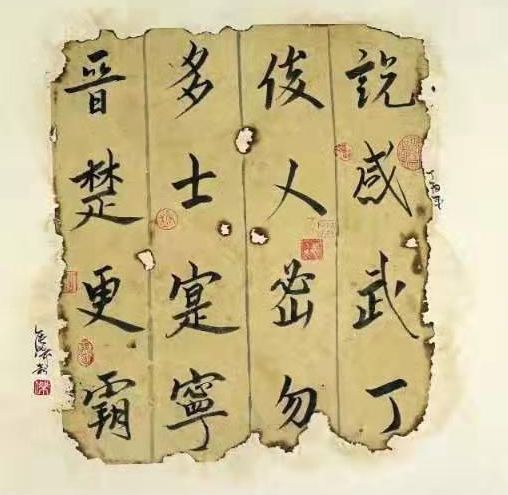 說感武丁
俊乂密勿
多士寔寧
晉楚更霸